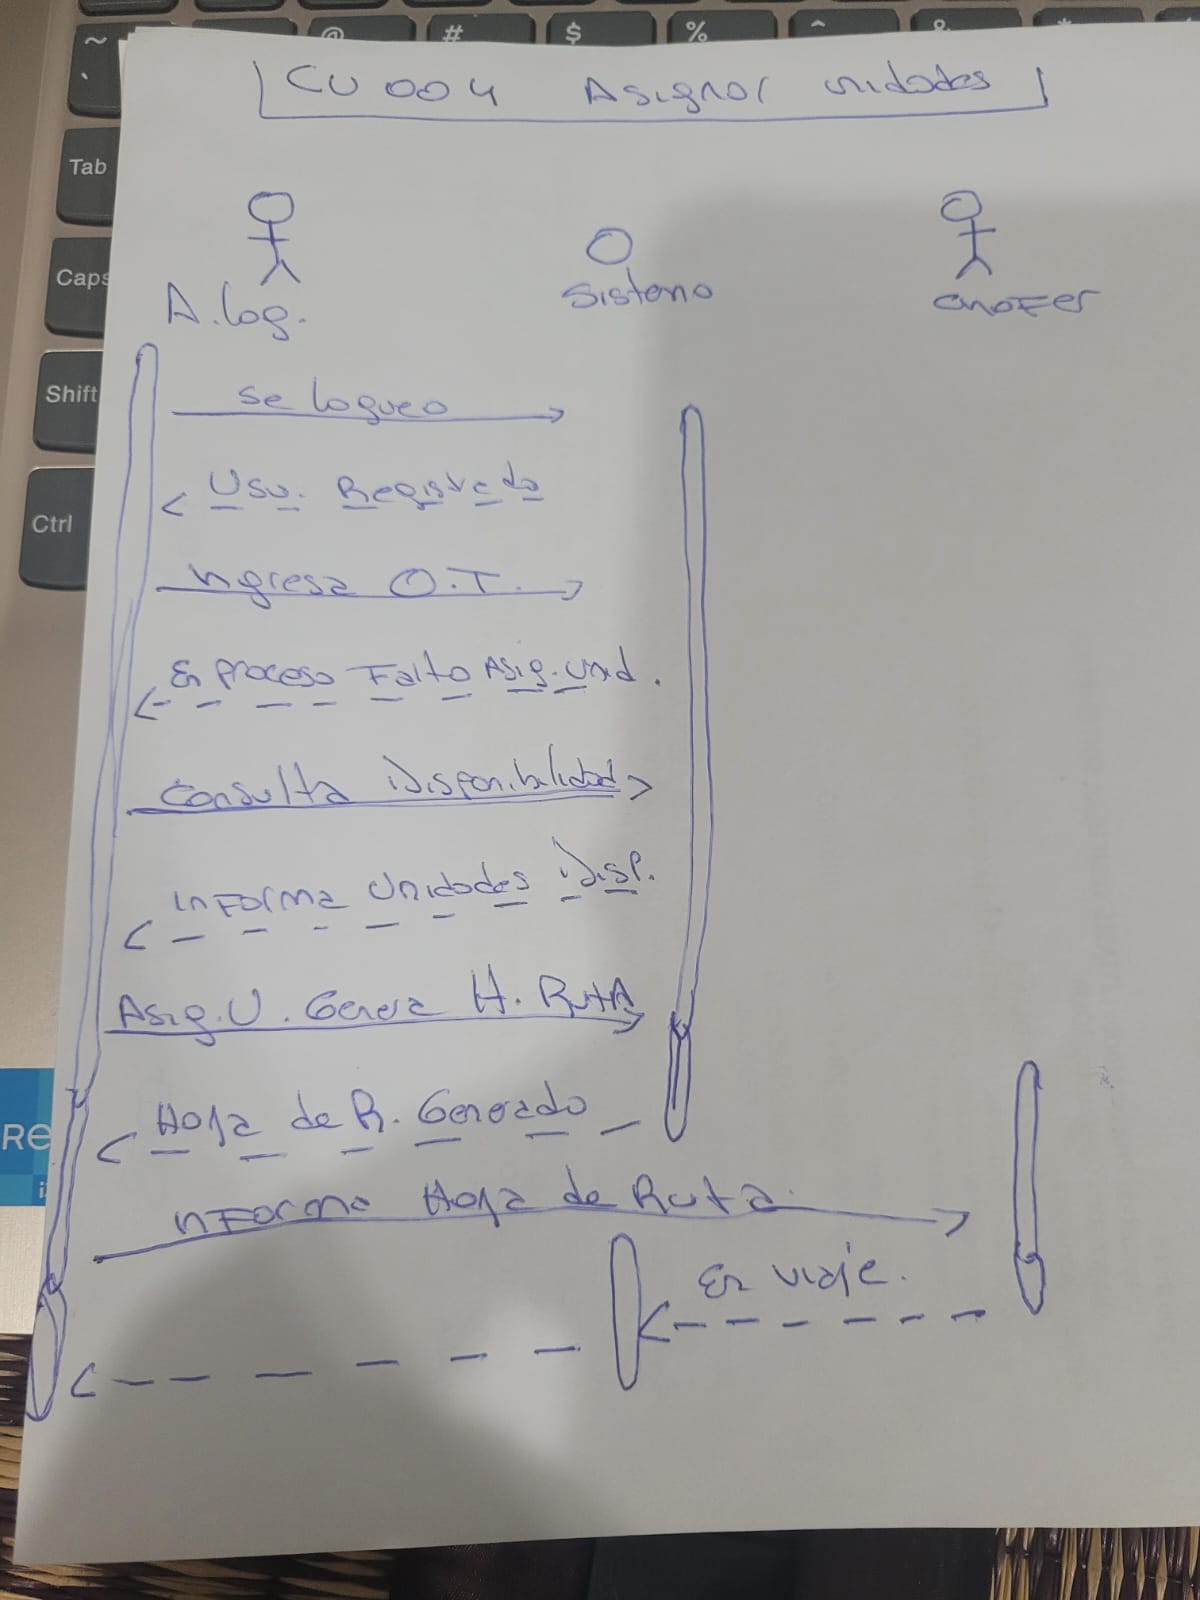 ~ @ # $ % ^ &
CU 004 Asignar unidades
Tab
Caps
Shift
Ctrl
A. log. Sistema chofer
Se loguea
Usu. Registrado
Ingresa O.T.
En proceso Falta Asig. Unid.
Consulta Disponibilidad
Informa Unidades Disp.
Asig. U. Genera H. Ruta
Hoja de R. Generado
Informa Hoja de Ruta.
En viaje.